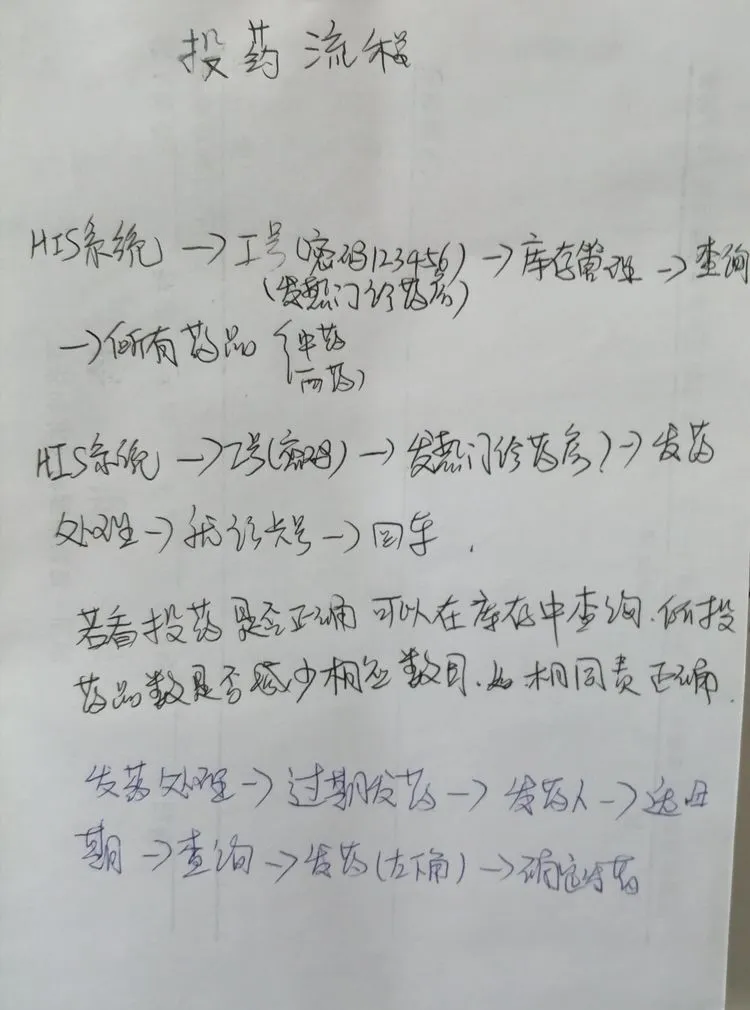 投药流程
HIS系统 → 工号(密码123456) → 库存管理 → 查询
(发热门诊药房)
→ 所有药品 {中药
西药}
HIS系统 → 工号(密码) → 发热门诊药房) → 发药
处理 → 就诊卡号 → 回车.
若看投药是否正确 可以在库存中查询.所投
药品数是否减少相应数目.如相同责正确.
发药处理 → 过期发药 → 发药人 → 选日
期 → 查询 → 发药(左下角) → 确定发药